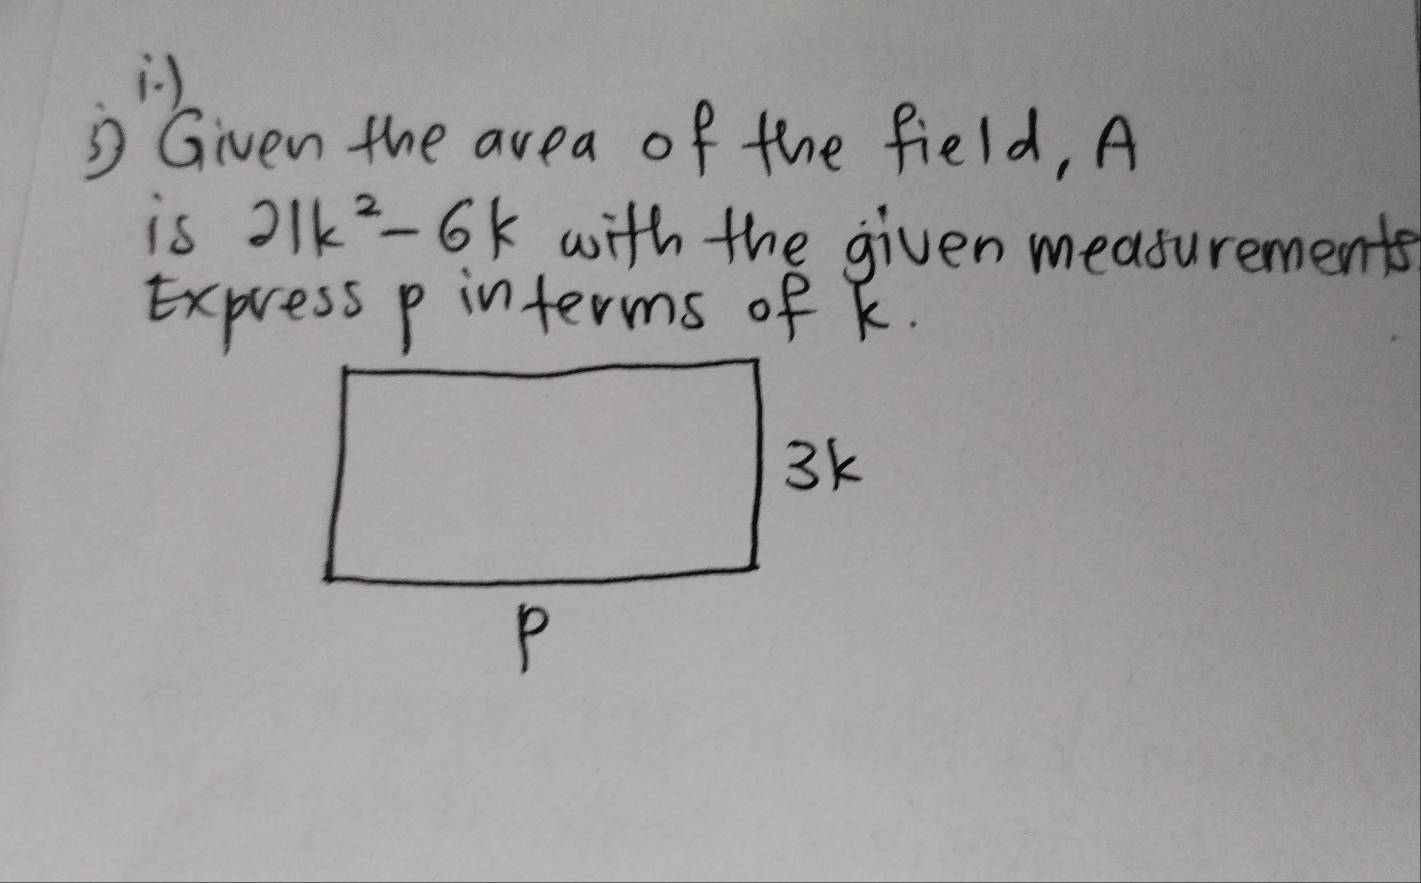 i.)
i) Given the area of the field, A
is 21k² - 6k with the given measurements
Express p in terms of k.
3k
p